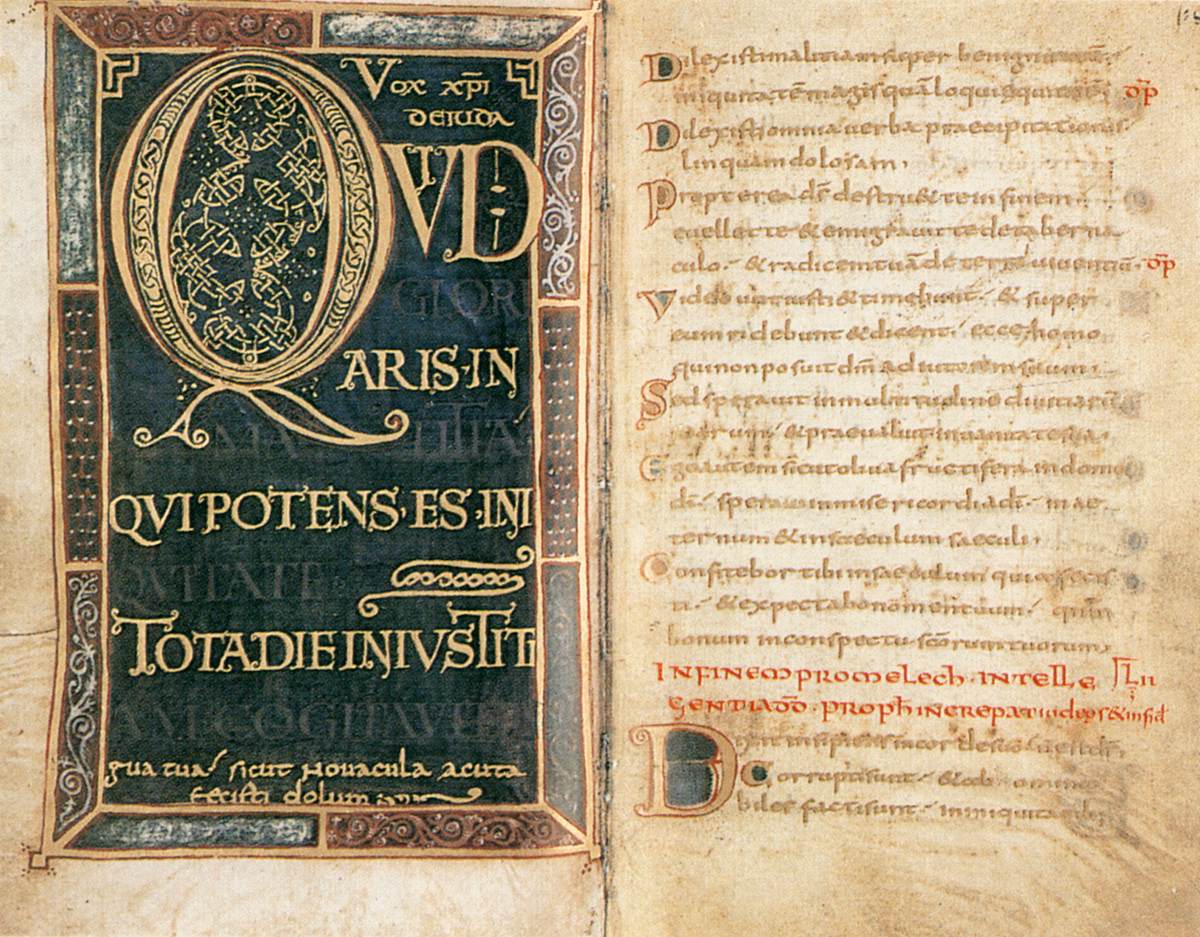 Vox xp̄i
DE IUDA
QVID
GLORI
ARIS·IN
MALITIA
QVI POTENS·ES·INI
QVITATE
TOTA DIE INIVSTITI
AM COGITAVIT
gua tua sicut novacula acuta
fecisti dolum
Dilexisti malitiam super benignitatem
iniquitatem magis quā loqui equitatē dp̄
Dilexisti omnia verba praecipitationis
linguam dolosam,
Propterea ds̄ destru& te in finem
evellet te & emigravit te de taberna
culo. & radicem tuā de terra viventiū. dp̄
Videbunt iusti & timebunt. & super
eum ridebunt & dicent. ecce homo
qui non posuit dm̄ adiutorem suum
Sed speravit in multitudine divitiarū
& praevaluit in vanitate sua
Ego autem sicut oliva fructifera in domo
dī speravi in misericordia dī in ae
ternum & in saeculum saeculi
Confitebor tibi in saeculum quia fecis
ti. & expectabo nomen tuum qnm̄
bonum in conspectu scōrum tuorum
IN FINEM PRO MELECH·INTELLE LII
GENTIA DD̄·
Dixit insipiens in corde suo
Corrupti sunt & abomina
biles facti sunt in iniquitatib